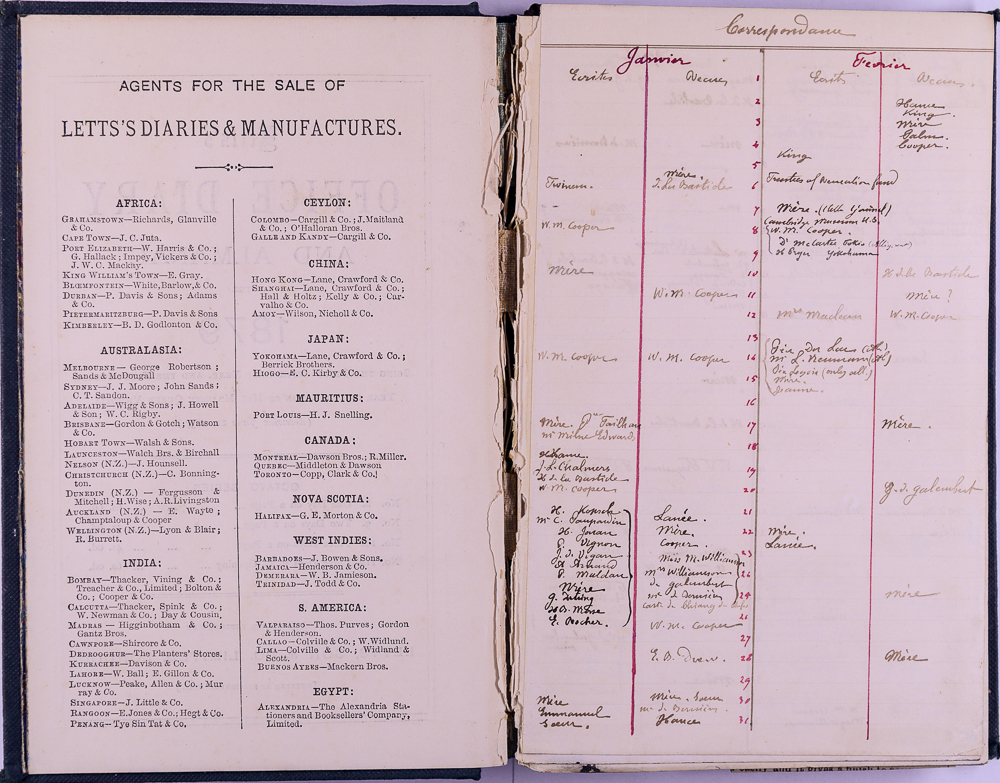 AGENTS FOR THE SALE OF
LETTS'S DIARIES & MANUFACTURES.
AFRICA:
GRAHAMSTOWN—Richards, Glanville
& Co.
CAPE TOWN—J. C. Juta.
PORT ELIZABETH—W. Harris & Co.;
G. Hallack; Impey, Vickers & Co.;
J. W. C. Mackay.
KING WILLIAM'S TOWN—E. Gray.
BLŒMFONTEIN—White, Barlow, & Co.
DURBAN—P. Davis & Sons; Adams
& Co.
PIETERMARITZBURG—P. Davis & Sons
KIMBERLEY—B. D. Godlonton & Co.
AUSTRALASIA:
MELBOURNE — George Robertson;
Sands & McDougall
SYDNEY—J. J. Moore; John Sands;
C. T. Sandon.
ADELAIDE—Wigg & Sons; J. Howell
& Son; W. C. Rigby.
BRISBANE—Gordon & Gotch; Watson
& Co.
HOBART TOWN—Walsh & Sons.
LAUNCESTON—Walch Brs. & Birchall
NELSON (N.Z.)—J. Hounsell.
CHRISTCHURCH (N.Z.)—C. Bonning-
ton.
DUNEDIN (N.Z.) — Fergusson &
Mitchell; H. Wise; A. R. Livingston
AUCKLAND (N.Z.) — E. Wayte;
Champtaloup & Cooper
WELLINGTON (N.Z.)—Lyon & Blair;
R. Burrett.
INDIA:
BOMBAY—Thacker, Vining & Co.;
Treacher & Co., Limited; Bolton &
Co.; Cooper & Co.
CALCUTTA—Thacker, Spink & Co.;
W. Newman & Co.; Day & Cousin.
MADRAS — Higginbotham & Co.;
Gantz Bros.
CAWNPORE—Shircore & Co.
DEDROOGHUR—The Planters' Stores.
KURRACHEE—Davison & Co.
LAHORE—W. Ball; E. Gillon & Co.
LUCKNOW—Peake, Allen & Co.; Mur
ray & Co.
SINGAPORE—J. Little & Co.
RANGOON—E. Jones & Co.; Hegt & Co.
PENANG—Tye Sin Tat & Co.
CEYLON:
COLOMBO—Cargill & Co.; J. Maitland
& Co.; O'Halloran Bros.
GALLE AND KANDY—Cargill & Co.
CHINA:
HONG KONG—Lane, Crawford & Co.
SHANGHAI—Lane, Crawford & Co.;
Hall & Holtz; Kelly & Co.; Car-
valho & Co.
AMOY—Wilson, Nicholl & Co.
JAPAN:
YOKOHAMA—Lane, Crawford & Co.;
Berrick Brothers.
HIOGO—E. C. Kirby & Co.
MAURITIUS:
PORT LOUIS—H. J. Snelling.
CANADA:
MONTREAL—Dawson Bros.; R. Miller.
QUEBEC—Middleton & Dawson
TORONTO—Copp, Clark & Co.
NOVA SCOTIA:
HALIFAX—G. E. Morton & Co.
WEST INDIES:
BARBADOES—J. Bowen & Sons.
JAMAICA—Henderson & Co.
DEMERARA—W. B. Jamieson.
TRINIDAD—J. Todd & Co.
S. AMERICA:
VALPARAISO—Thos. Purves; Gordon
& Henderson.
CALLAO—Colville & Co.; W. Widlund.
LIMA—Colville & Co.; Widland &
Scott.
BUENOS AYRES—Mackern Bros.
EGYPT:
ALEXANDRIA—The Alexandria Sta-
tioners and Booksellers' Company,
Limited.
Correspondance
Janvier
Février
Ecrites Reçues 1 Ecrits Reçues.
2 Hance
King.
3 Mère
Galm.
4 Cooper.
King
5
Mère.
Swinhoe. 6
7 Mère.
W. M. Cooper 8 W. M. Cooper.
9 Yokohama
Mère 10 H. de la Bastide
W. M. Cooper 11 Mère ?
12 Mrs W. M. Cooper
13
W. M. Cooper W. M. Cooper 14
15 Mère.
16
Mère. 17 Mère.
Mr Milne Edwards
18
Hance.
J. L. Chalmers 19
H. de la Bastide
W. M. Cooper 20 G. de Galembert
H. Kopsch 21
Lancée.
Mère. 22 Mère.
E. Vignon Cooper. Lancée.
23
Miss M. Williamson
Mrs Williamson
de galembert
Mère 24 Mère
26
W. M. Cooper
27
E. B. Drew. 28 Mère
29
Mère Mère. Soeur 30
Emmanuel
Soeur. Hance 31